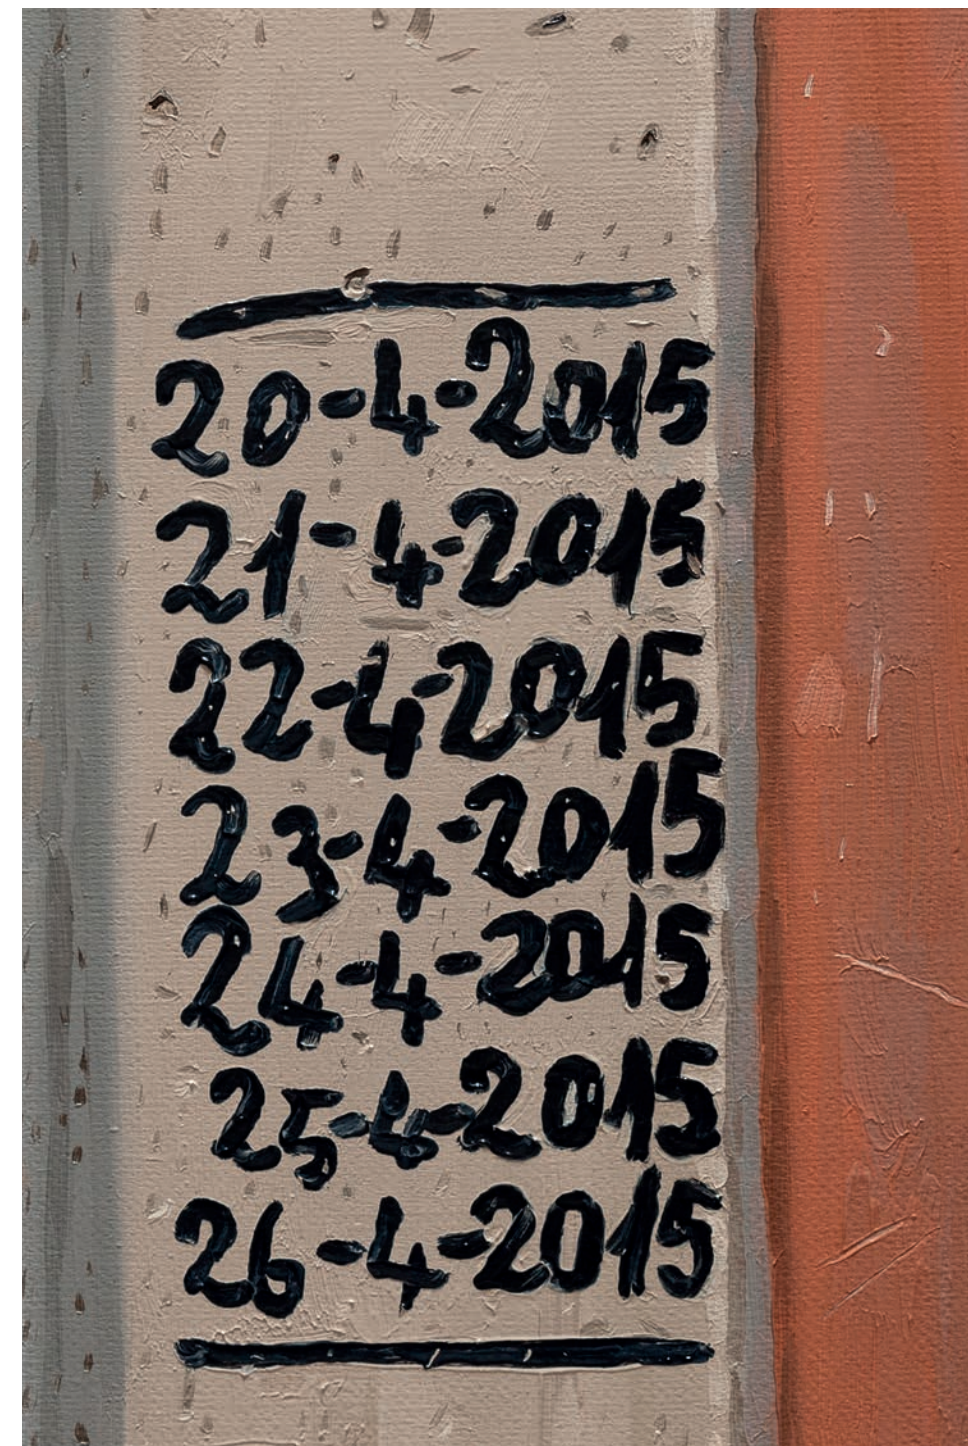 20-4-2015
21-4-2015
22-4-2015
23-4-2015
24-4-2015
25-4-2015
26-4-2015